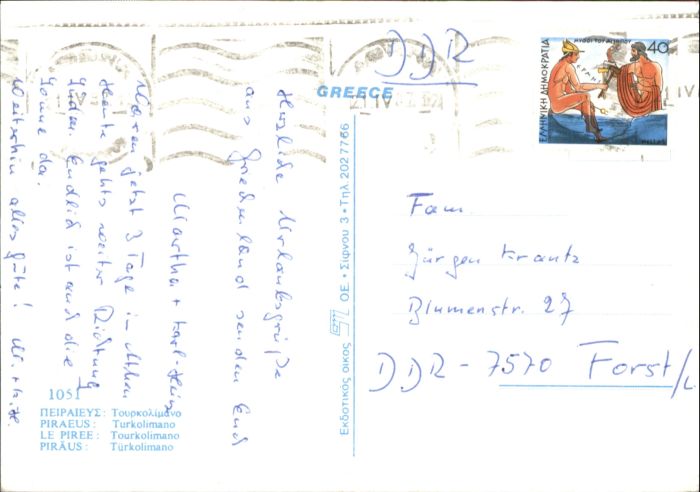 Herzliche Urlaubsgrüße
aus Griechenland senden Euch
Martha + Karl-Heinz
Waren jetzt 3 Tage in Athen
Heute gehts weiter Richtung
Süden. Endlich ist auch die
Sonne da.
Weiterhin alles Gute! M. + K.H.
1051
ΠΕΙΡΑΙΕΥΣ: Τουρκολίμανο
PIRAEUS: Turkolimano
LE PIREE: Tourkolimano
PIRÄUS: Türkolimano
GREECE
Εκδοτικός οικος ΟΕ • Σίφνου 3 • Τηλ. 2027766
DDR
ΜΥΘΟΙ ΤΟΥ ΑΙΣΩΠΟΥ
40
ΕΛΛΗΝΙΚΗ ΔΗΜΟΚΡΑΤΙΑ
HELLAS
Fam.
Jürgen Krantz
Blumenstr. 27
DDR - 7570 Forst/L